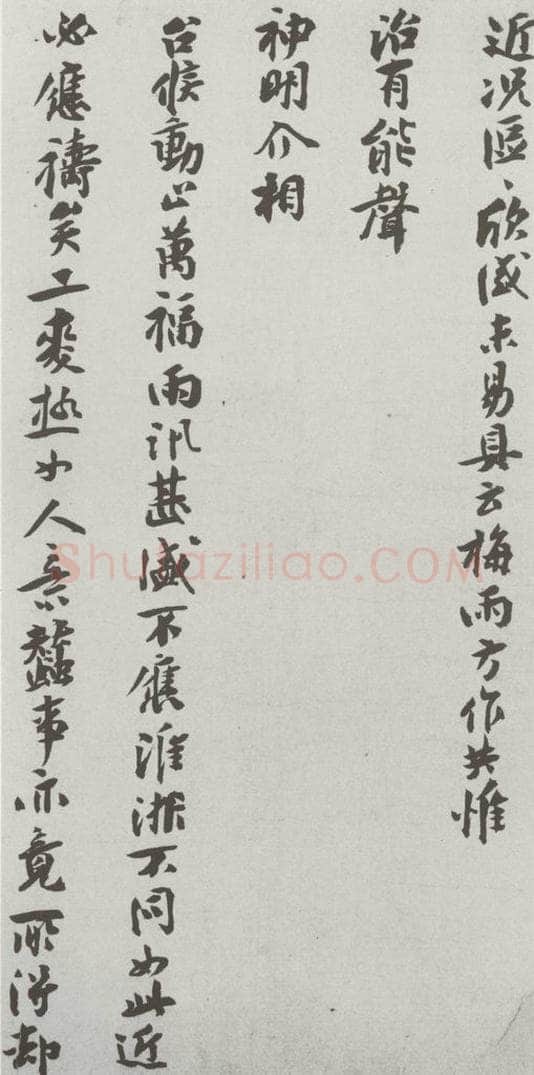 近况區〻欣感未易具云梅雨方作共惟
治有能聲
神明介相
台候動止萬福雨汛甚盛不應淮浙不同如此近
必應禱矣二麥極少人意蠶事亦竟所得却
Shufaziliao.COM